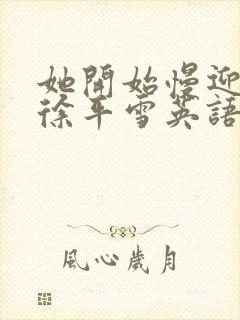 她開始慢迎
徐平雪英語
風心歲月